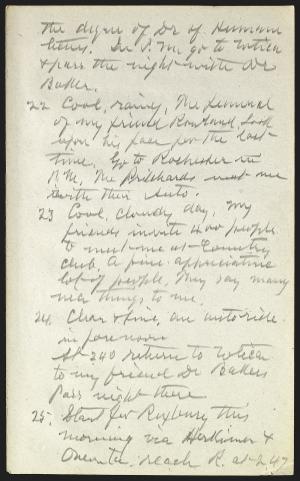 the degree of Dr of Humane
letters. In P.M. go to Utica
& pass the night with Dr
Baker.
22 Cool, rainy, The funeral
of my friend Rowland, look
upon his face for the last
time. Go to Rochester in
P.M., The Prichards meet me
with their auto.
23 Cool, cloudy day, my
friends invite 400 people
to meet me at Country
club. A fine appreciative
lot of people. They say many
nice things to me.
24. Clear & fine, an auto ride
in forenoon
At 2 40 return to Utica
to my friend Dr Bakers
Pass night there
25. Start for Roxbury this
morning via Herkimer &
Oneonta, reach R. at 2 47